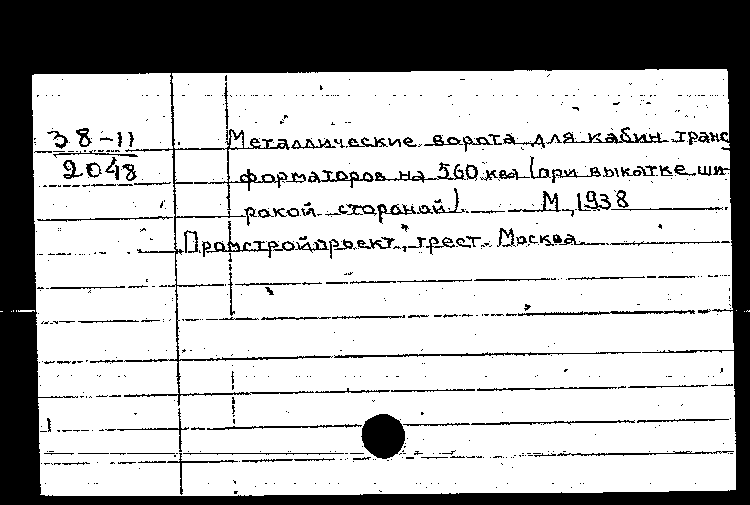 38-11
2048
Металлические ворота для кабин транс
форматоров на 560 ква (при выкатке ши-
рокой стороной). М, 1938
Промстройпроект, трест. Москва